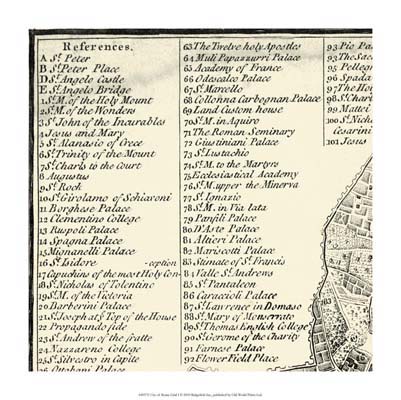 References.
A St. Peter
B St. Peter Place
D St. Angelo Castle
E St. Angelo Bridge
1 St. M. of the Holy Mount
2 St. M. of the Wonders
3 St. John of the Incurables
4 Jesus and Mary
5 St. Atanasio of Grece
6 St. Trinity of the Mount
7 St. Charls to the Court
8 Augustus
9 St. Rock
10 St. Girolamo of Schiavoni
11 Borghese Palace
12 Clementino College
13 Ruspoli Palace
14 Spagna Palace
15 Mignanelli Palace
16 St. Isidore - ception
17 Capuchins of the most Holy Con-
18 St. Nicholas of Tolentino
19 St. M. of the Victoria
20 Barborini Palace
21 St. Joseph at ye Top of the House
22 Propaganda fide
23 St. Andrew of the fratte
24 Nazzareno College
25 St. Silvestro in Capite
Ottoboni Palace
63 The Twelve holy Apostles
64 Muti Papazzurri Palace
65 Academy of France
66 Odescalco Palace
67 St. Marcello
68 Collonna Carbognan Palace
69 Land Custom house
70 St. M. in Aquiro
71 The Roman Seminary
72 Giustiniani Palace
73 St. Eustachio
74 St. M. to the Martyrs
75 Ecclesiastical Academy
76 St. M. upper the Minerva
77 St. Ignazio
78 St. M. in Via lata
79 Panfili Palace
80 D'Aste Palace
81 Altieri Palace
82 Mariscotti Palace
83 Stimate of St. Francis
84 Valle St. Andrews
85 St. Pantaleon
86 Caraccioli Palace
87 St. Lawrence in Domaso
88 St. Mary of Monserrato
89 St. Thomas English College
90 St. Gerome of the Charity
91 Farnese Palace
92 Flower Field Place
93 Pio Pa
94 The Sac
95 Pellegr
96 Spada
97 The Ho
98 St. Charl
99 Mattei
100 St. Nich
Cesarini
101 Jesus